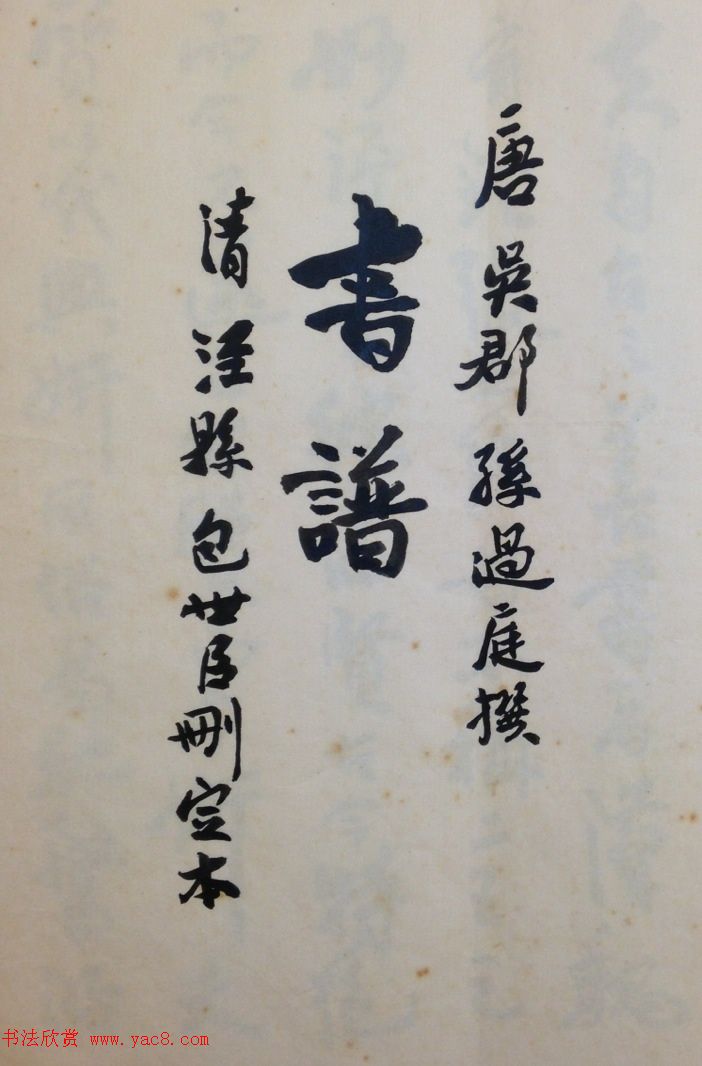 唐吳郡孫過庭撰
書譜
清涇縣包世臣刪定本
书法欣赏 www.yac8.com